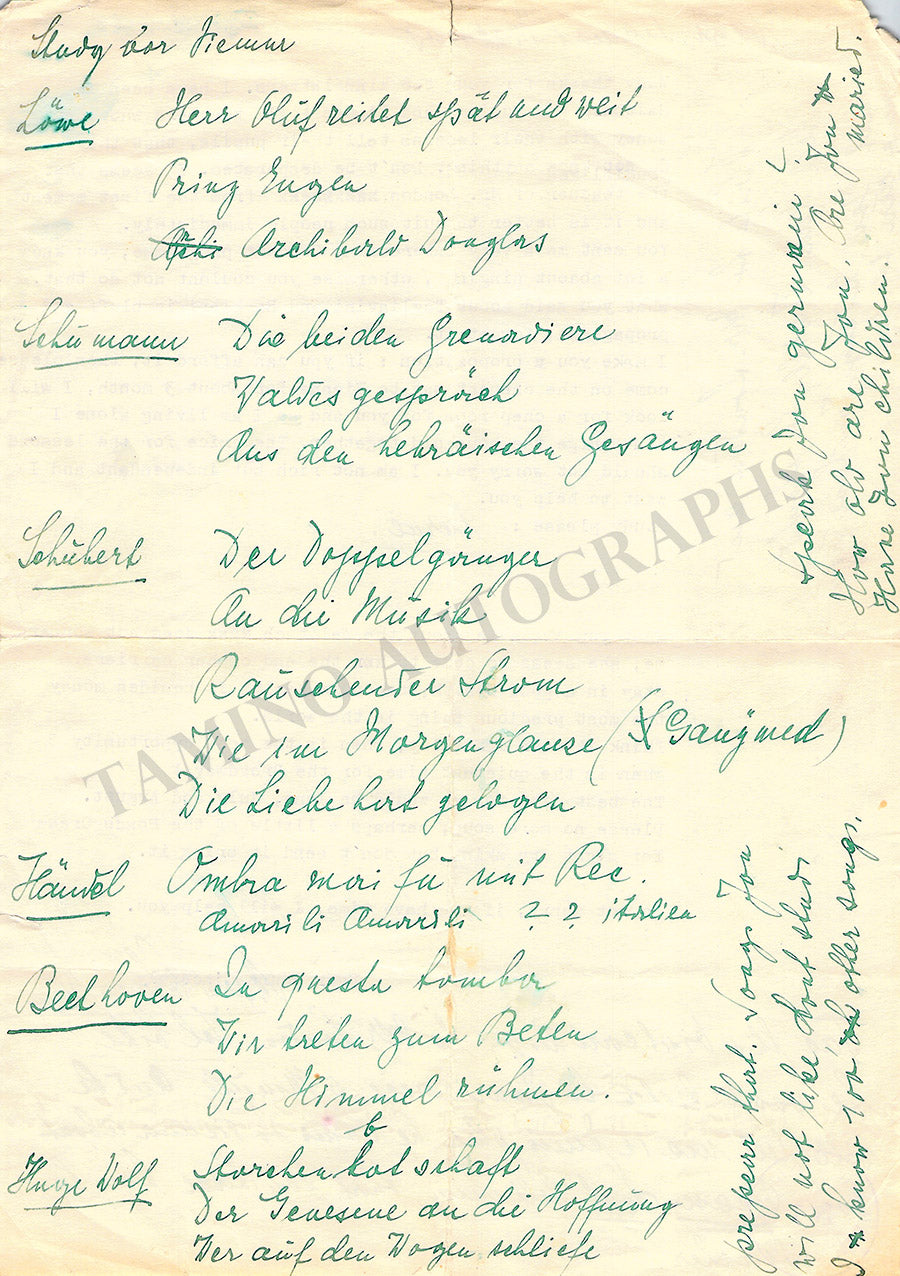 Study
Löwe Herr Oluf reitet spät und weit
Prinz Eugen
Archibald Douglas
Schumann Die beiden Grenadiere
Waldesgespräch
Aus den hebräischen Gesängen
Schubert Der Doppelgänger
An die Musik
Rauschender Strom
Wie im Morgenglanze (Ganymed)
Die Liebe hat gelogen
Händel Ombra mai fu mit Rec.
Amarili Amarili ? ? italien
Beethoven In questa tomba
Wir treten zum Beten
Die Himmel rühmen.
Hugo Wolf Storchenbotschaft
Der Genesene an die Hoffnung
Wer auf den Wogen schliefe
Speak You germain?
How old are You. Are You maried.
Have Youn children.
prepear that. Songs You
will not like, dont studi
I know 100 other songs.
TAMINO AUTOGRAPHS